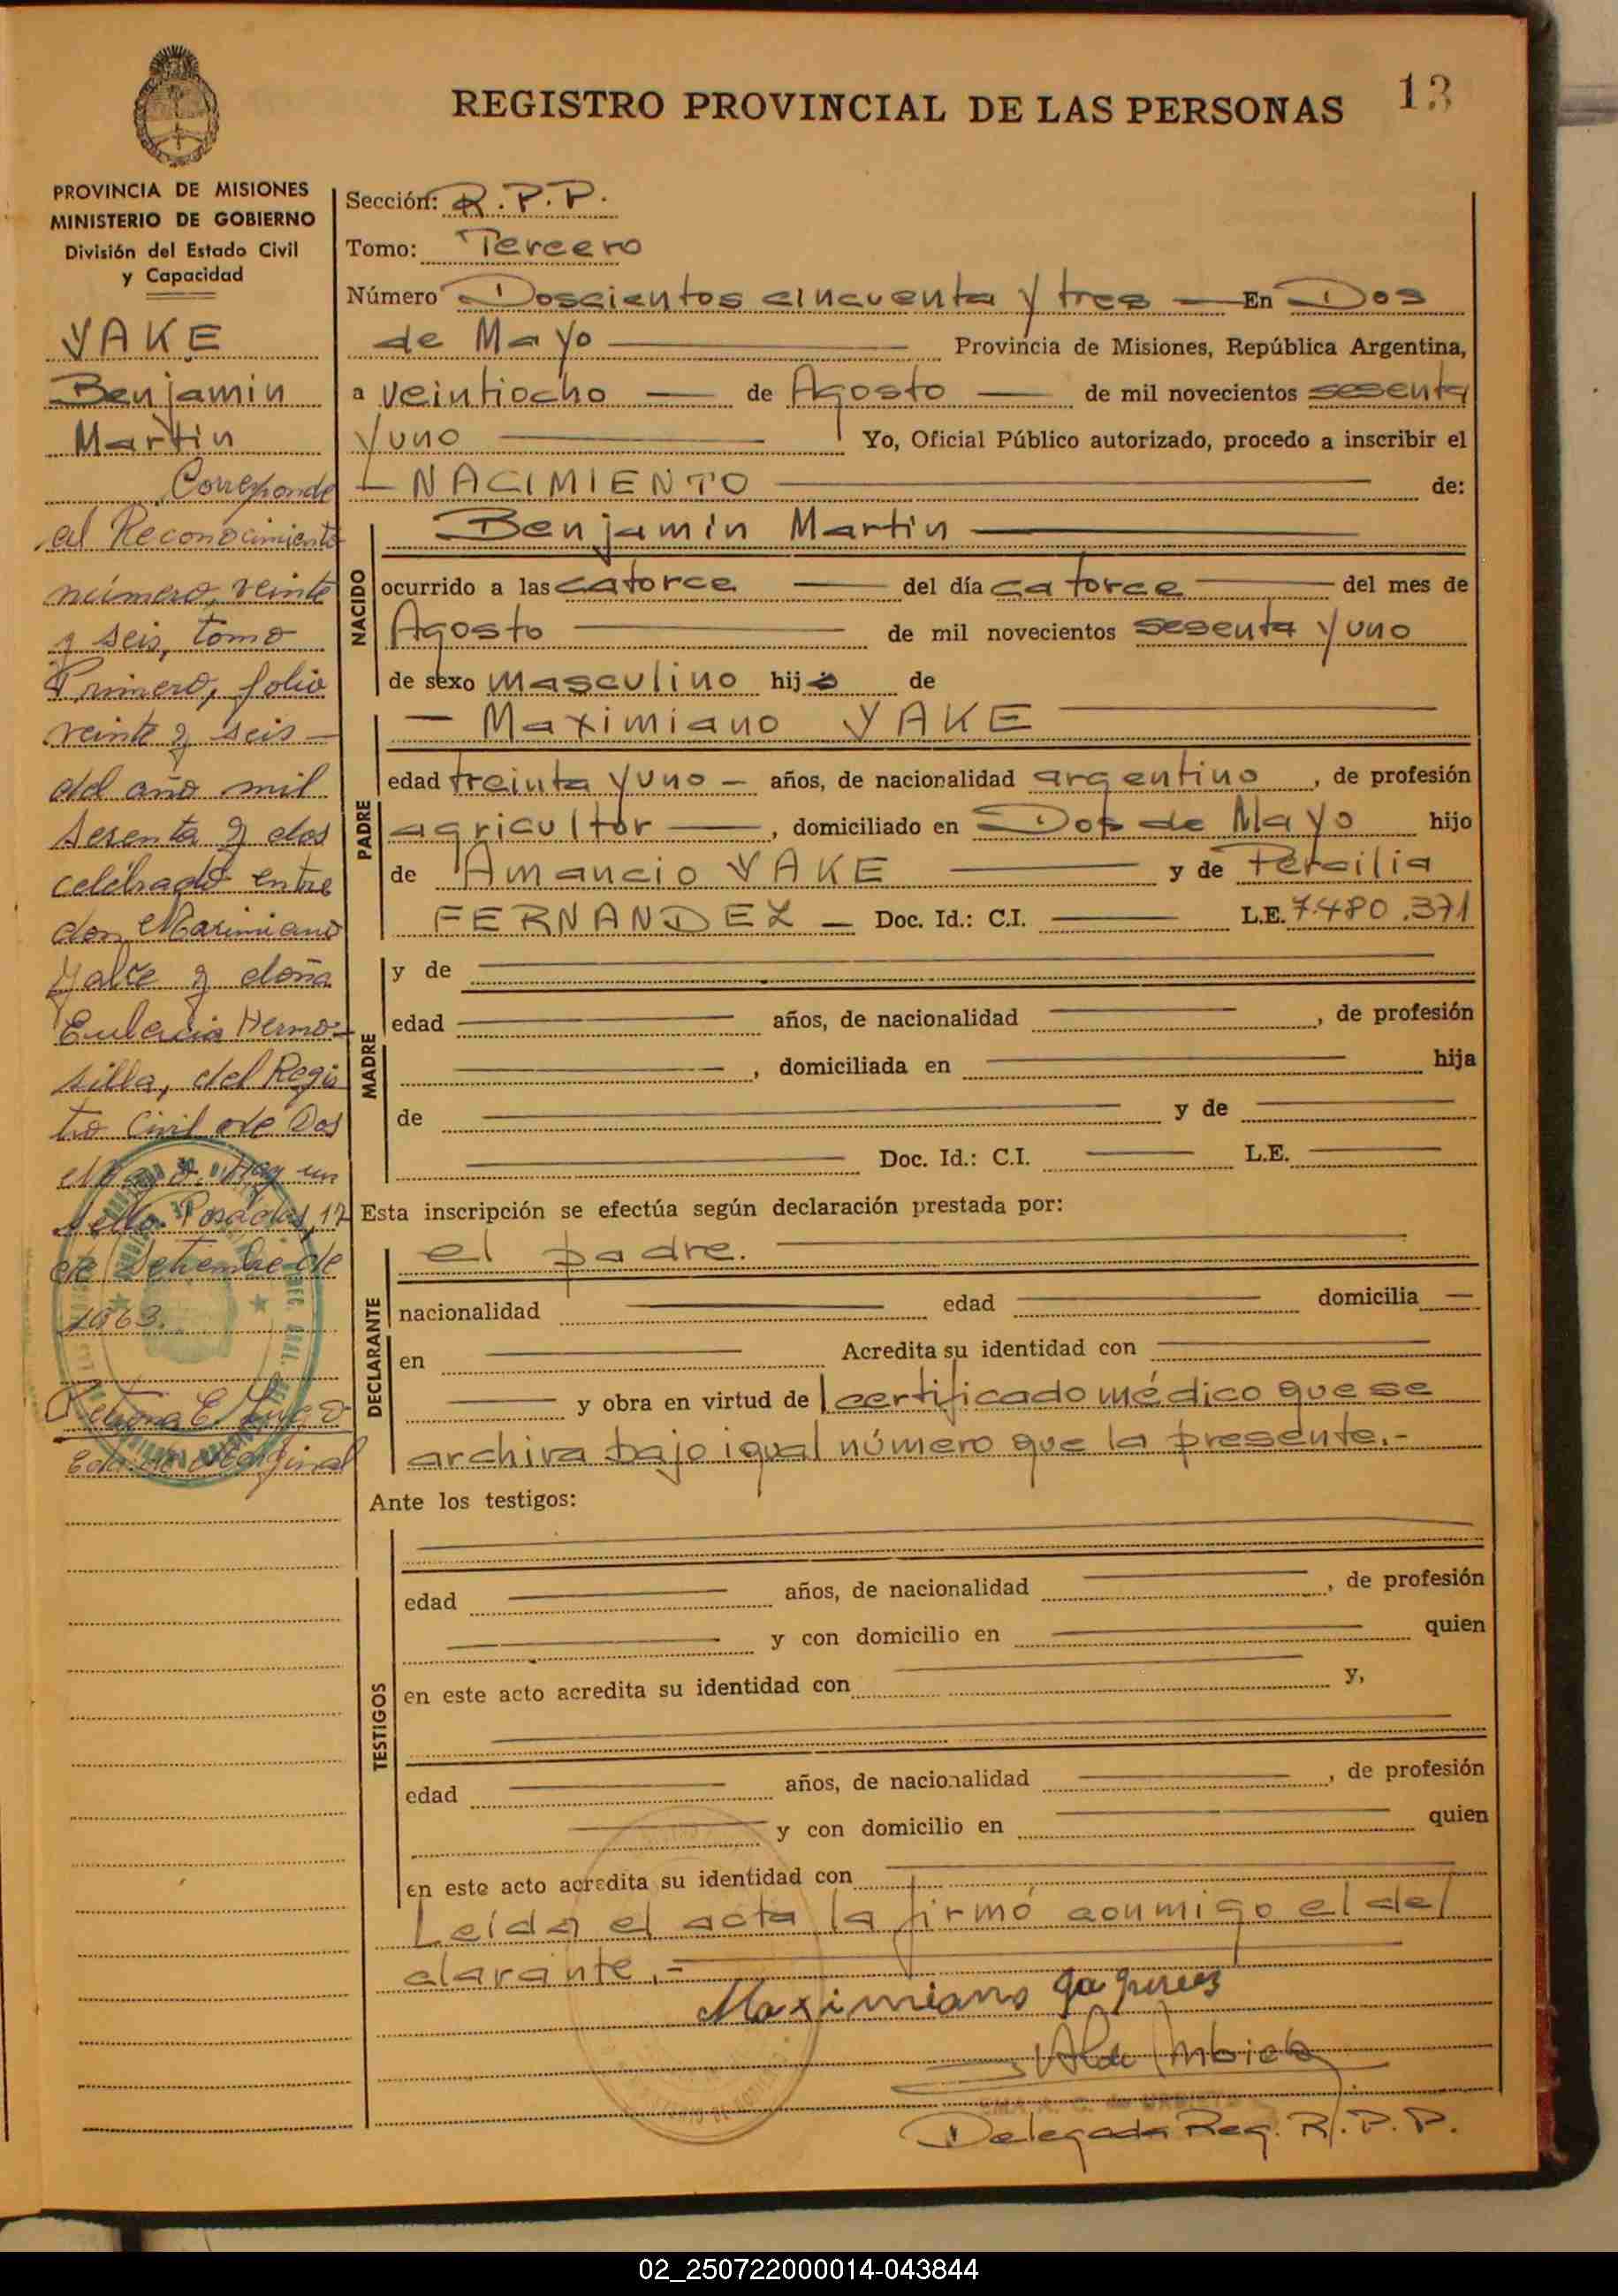 REGISTRO PROVINCIAL DE LAS PERSONAS
13
PROVINCIA DE MISIONES
MINISTERIO DE GOBIERNO
División del Estado Civil
y Capacidad
YAKE
Benjamin
Martin
Corresponde
al Reconocimiento
número, veinte
y seis, tomo
Primero, folio
veinte y seis —
del año mil
sesenta y dos
celebrado entre
don Maximiano
Yake y doña
Eulecia Hermo-
silla, del Regis
tro Civil de Dos
Mayo. Hay un
sello. Posadas, 17
de Setiembre de
1963.
Sección: R.P.P.
Tomo: Tercero
Número Doscientos cincuenta y tres — En Dos
de Mayo — Provincia de Misiones, República Argentina,
a veintiocho — de Agosto — de mil novecientos sesenta
y uno — Yo, Oficial Público autorizado, procedo a inscribir el
— NACIMIENTO — de:
NACIDO
Benjamin Martin —
ocurrido a las catorce — del día catorce — del mes de
Agosto — de mil novecientos sesenta y uno
de sexo masculino hijo de
PADRE
— Maximiano YAKE —
edad treinta y uno — años, de nacionalidad argentino, de profesión
agricultor —, domiciliado en Dos de Mayo hijo
de Amancio YAKE — y de Percilia
FERNANDEZ — Doc. Id.: C.I. — L.E. 7.480.371
MADRE
y de —
edad — años, de nacionalidad —, de profesión
—, domiciliada en — hija
de — y de —
— Doc. Id.: C.I. — L.E. —
Esta inscripción se efectúa según declaración prestada por:
DECLARANTE
el padre. —
nacionalidad — edad — domicilia —
en — Acredita su identidad con —
— y obra en virtud de certificado médico que se
archiva bajo igual número que la presente.-
Ante los testigos:
TESTIGOS
edad — años, de nacionalidad —, de profesión
— y con domicilio en — quien
en este acto acredita su identidad con — y,
edad — años, de nacionalidad —, de profesión
— y con domicilio en — quien
en este acto acredita su identidad con —
Leída el acta la firmó conmigo el de
clarante.-
Maximiano
Delegada Reg. R.P.P.
02_250722000014-043844